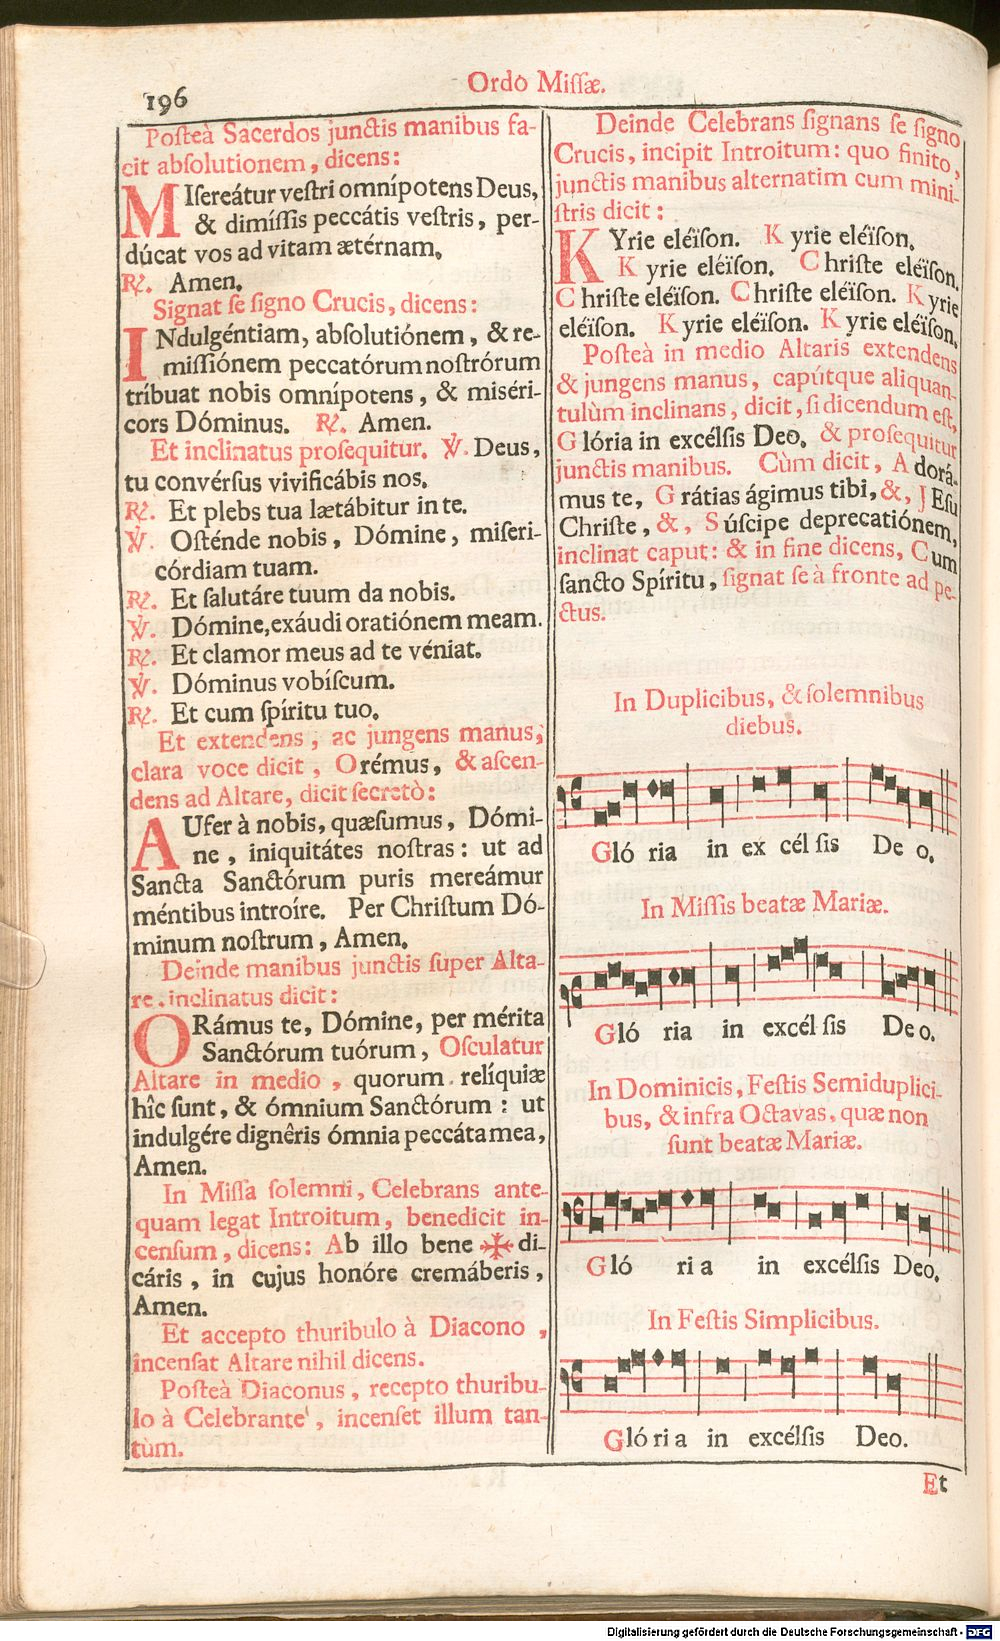 196
Ordo Missæ.
Posteà Sacerdos junctis manibus fa-
cit absolutionem, dicens:
MIsereátur vestri omnípotens Deus,
& dimíssis peccátis vestris, per-
dúcat vos ad vitam ætérnam.
℟. Amen.
Signat se signo Crucis, dicens:
INdulgéntiam, absolutiónem, & re-
missiónem peccatórum nostrórum
tríbuat nobis omnípotens, & miséri-
cors Dóminus. ℟. Amen.
Et inclinatus prosequitur. ℣. Deus,
tu convérsus vivificábis nos.
℟. Et plebs tua lætábitur in te.
℣. Osténde nobis, Dómine, miseri-
córdiam tuam.
℟. Et salutáre tuum da nobis.
℣. Dómine, exáudi oratiónem meam.
℟. Et clamor meus ad te véniat.
℣. Dóminus vobíscum.
℟. Et cum spíritu tuo.
Et extendens, ac jungens manus;
clara voce dicit, Orémus, & ascen-
dens ad Altare, dicit secretò:
AUfer à nobis, quæsumus, Dómi-
ne, iniquitátes nostras: ut ad
Sancta Sanctórum puris mereámur
méntibus introíre. Per Christum Dó-
minum nostrum, Amen.
Deinde manibus junctis super Alta-
re, inclinatus dicit:
ORámus te, Dómine, per mérita
Sanctórum tuórum, Osculatur
Altare in medio, quorum relíquiæ
hîc sunt, & ómnium Sanctórum: ut
indulgére dignêris ómnia peccáta mea,
Amen.
In Missa solemni, Celebrans ante-
quam legat Introitum, benedicit in-
censum, dicens: Ab illo bene ✠ di-
cáris, in cujus honóre cremáberis,
Amen.
Et accepto thuribulo à Diacono,
incensat Altare nihil dicens.
Posteà Diaconus, recepto thuribu-
lo à Celebrante, incenset illum tan-
tùm.
Deinde Celebrans signans se signo
Crucis, incipit Introitum: quo finito,
junctis manibus alternatim cum mini-
stris dicit:
KYrie eléïson. Kyrie eléïson.
Kyrie eléïson. Christe eléïson.
Christe eléïson. Christe eléïson. Kyrie
eléïson. Kyrie eléïson. Kyrie eléïson.
Posteà in medio Altaris extendens
& jungens manus, capútque aliquan-
tulùm inclinans, dicit, si dicendum est,
Glória in excélsis Deo. & prosequitur
junctis manibus. Cùm dicit, Adorá-
mus te, Grátias ágimus tibi, &, JEsu
Christe, &, Súscipe deprecatiónem,
inclinat caput: & in fine dicens, Cum
sancto Spíritu, signat se à fronte ad pe-
ctus.
In Duplicibus, & solemnibus
diebus.
Gló ria in ex cél sis De o.
In Missis beatæ Mariæ.
Gló ria in excél sis De o.
In Dominicis, Festis Semiduplici-
bus, & infra Octavas, quæ non
sunt beatæ Mariæ.
Gló ri a in excélsis Deo.
In Festis Simplicibus.
Gló ri a in excélsis Deo.
Et
Digitalisierung gefördert durch die Deutsche Forschungsgemeinschaft - DFG